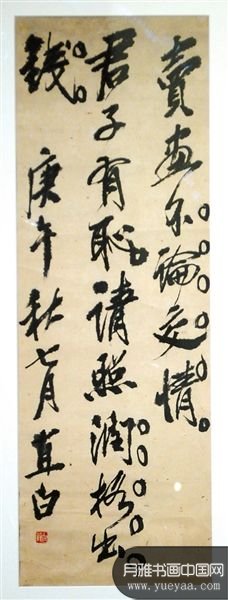 賣畫不論交情。
君子有恥請照潤格出
錢。庚午秋七月直白
月雅书画中国网
www.yueyaa.com